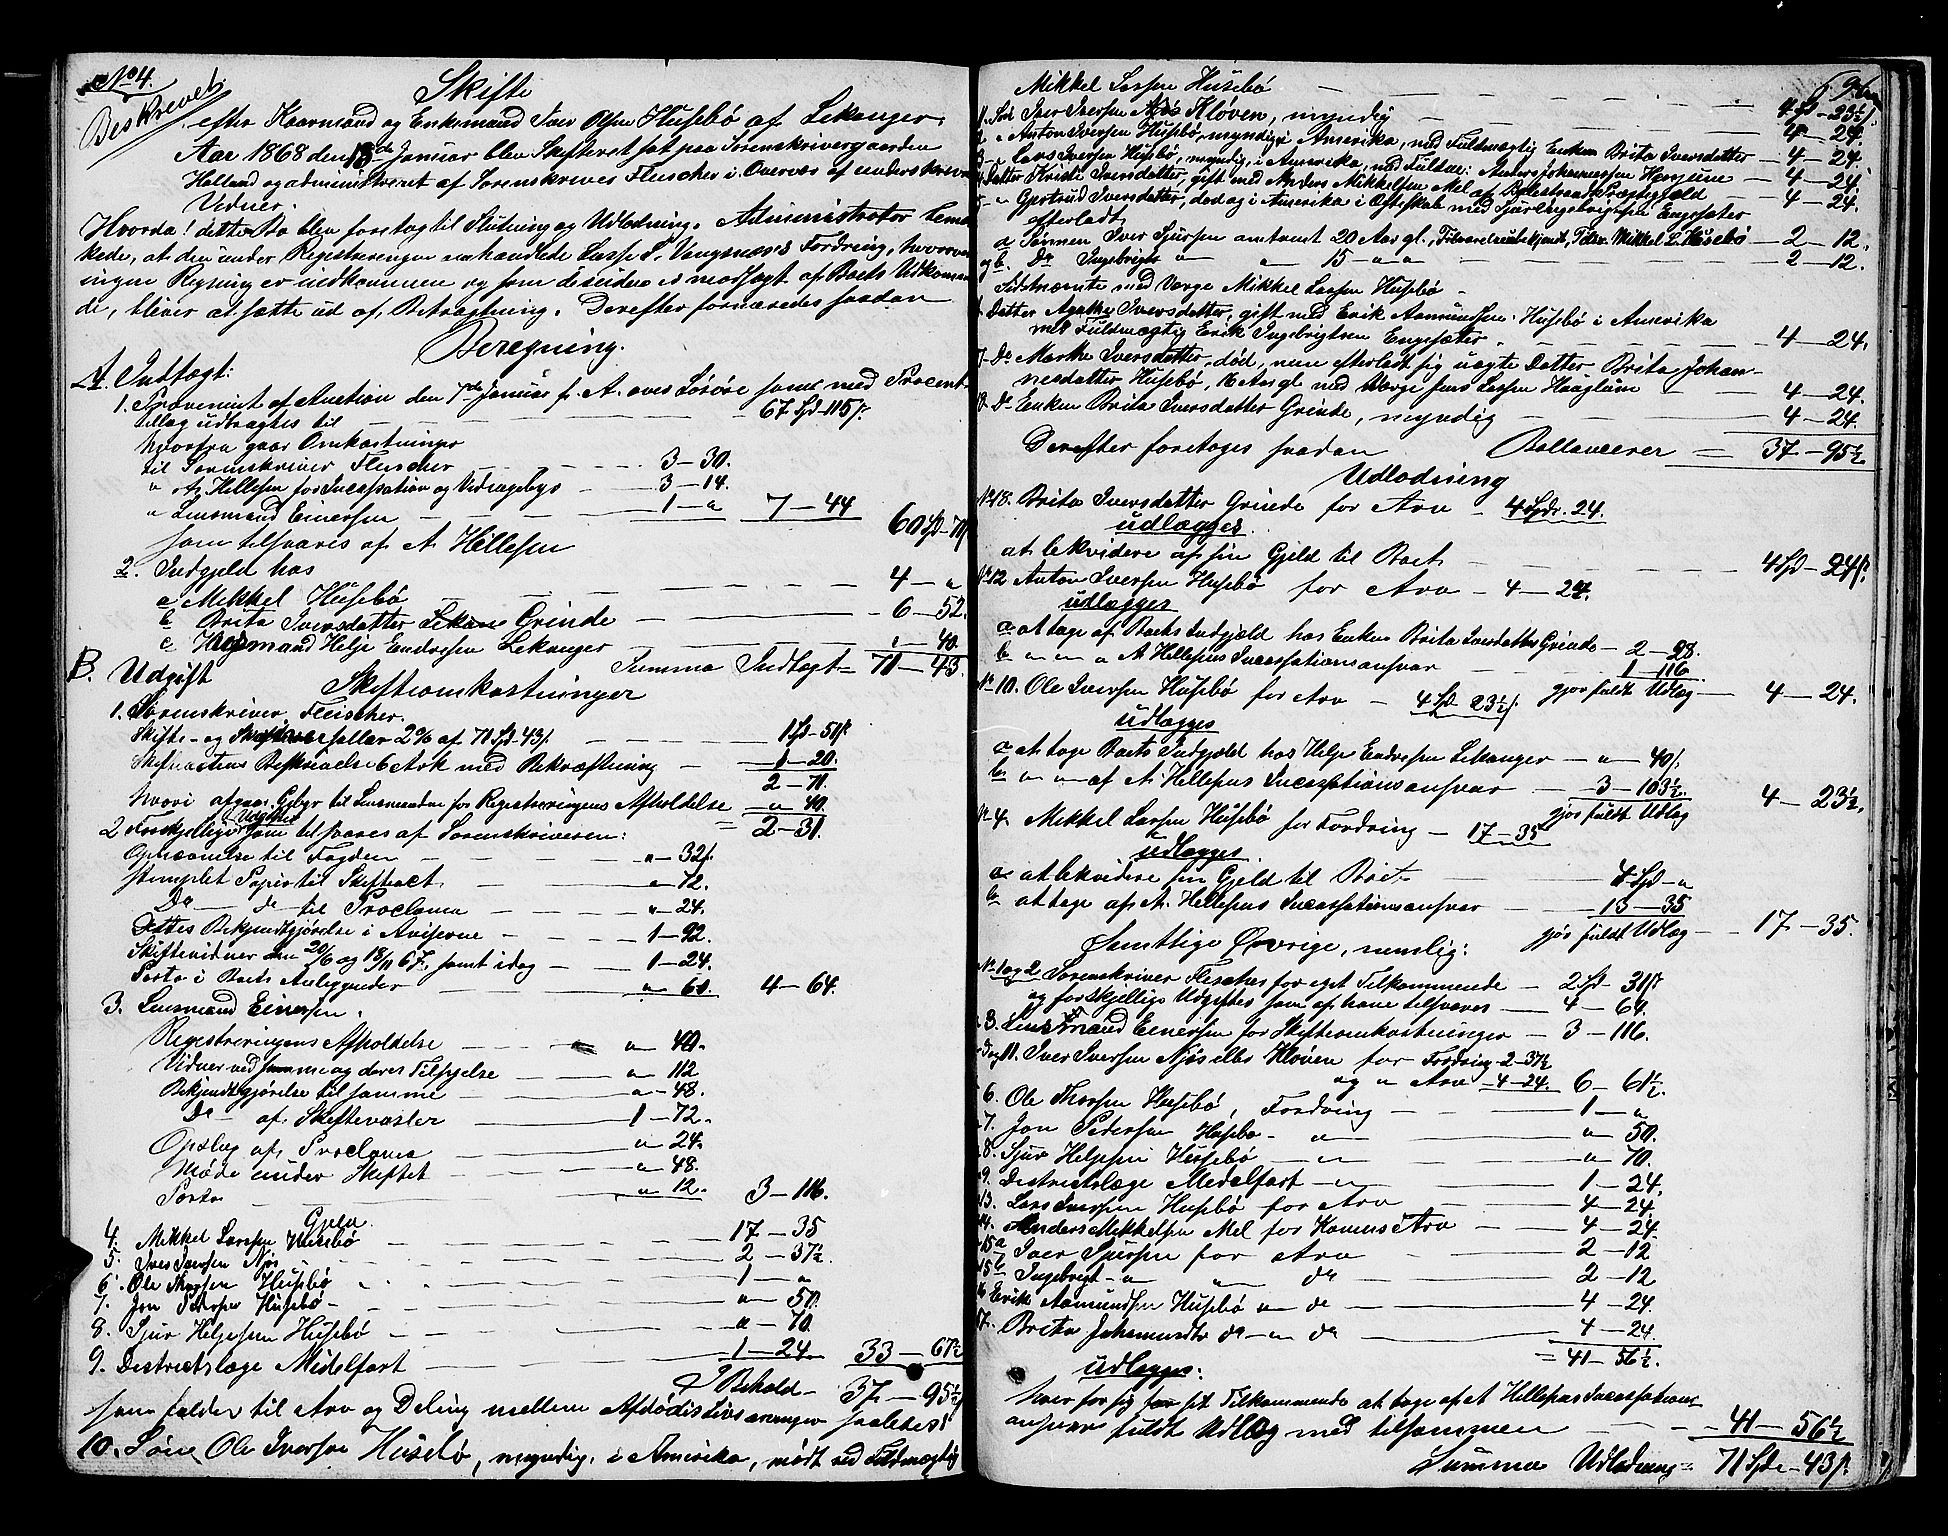 No 4.
Beskrevet
Skifte
efter Kaarmand og Enkemand Iver Olsen Husebø af Lekanger.
Aar 1868 den 18de Januar blev Skifteret sat paa Sorenskrivergaarden
Holland og administreret af Sorenskriver Fleischer i Overvær af underskrevne
Vidner.
Hvorda! dette Bo blev foretaget til Slutning og Udlodning. Administrator bemær-
kede, at den under Registreringen omhandlede Lasse S. Vengsnæs's Fordring, hvorom
ingen Regning er indkommen og som desuden er modsagt af Boets Vedkommen-
de, bliver at sætte ud af Betragtning. Derefter forfattedes saadan
Beregning.
A. Indtægt:
1. Provenuet af Auction den 7de Januar f. A. over Løsøre samt med Procent-
tillæg udbragtes til — 67 Spd 115 s.
hvorfra gaar Omkostninger
til Sorenskriver Fleischer — 3 — 30.
" A. Hellesen for Incassation og Vidragebys — 3 — 14.
" Lensmand Einersen — 1 — " 7 — 44
som tilsvares af A. Hellesen 60 Spd — 71 s
2. Indgjeld hos
a Mikkel Husebø — 4 — "
b Brita Iversdatter Grinde — 6 — 52.
c Husmand Helje Endresen Lekanger — " — 40.
Summa Indtægt — 71 — 43.
B. Udgift
Skifteomkostninger
1. Sorenskriver Fleischer.
Skifte- og Skriversaller 2% af 71 Spd 43 s. — 1 Spd — 51 s.
Skifteactens Beskrivelse 6 Ark med Bekræftning — 1 — 20.
2 — 71.
hvori afgaar Gebyr til Lensmanden for Registreringens Afholdelse — " — 40.
= 2 — 31.
2 Forskjellige Udgifter som tilsvares af Sorenskriveren:
Opnævnelse til Fogden — " — 32 s.
Stemplet Papir til Skifteact — " — 72.
Do — do til Proclama — " — 24.
Dettes Bekjendtgjørelse i Aviserne — 1 — 92.
Skiftevidner den 20/6 og 18/11 67, samt idag — 1 — 24.
Porto i Boets Anliggender — " — 60. 4 — 64.
3. Lensmand Einersen.
Registreringens Afholdelse — " — 40.
Vidner ved samme og deres Tilsigelse — " — 112
Bekjendtgjørelse til samme — " — 48.
Do — af Skiftevasler — 1 — 72.
Opslag af Proclama — " — 24.
Møde under Skiftet — " — 48.
Porto — " — 12. 3 — 116.
Gjeld.
4. Mikkel Larssen Husebø — 17 — 35
5. Iver Iversen Njøs — 2 — 37½
6. Ole Thorsen Husebø — 1 — "
7. Jon Pedersen Husebø — " — 50.
8. Sjur Heljesen Husebø — " — 70.
9. Districtslæge Midelfart — 1 — 24. 33 — 67½
I Behold — 37 — 95½
som falder til Arv og Deling mellem Afdødes Livsarvinger saaledes:
10. Søn Ole Iversen Husebø, myndig, i Amerika, mødt ved Fuldmægtig
96
Mikkel Larssen Husebø — 4 Spd — 23½ s.
1. Søn Iver Iversen Njøs Kløven, myndig — 4 — 24.
2. " Anton Iversen Husebø, myndig i Amerika, med Fuldmægtig Enken Brita Iversdatter — 4 — 24.
3. " Lars Iversen Husebø, myndig, i Amerika, med Fuldm: Anders Johannessen Henjum — 4 — 24.
4. Datter Kristi Iversdatter, gift med Anders Mikkelsen Mel af Balestrands Præstegjeld — 4 — 24.
5. " Gjertrud Iversdatter, død og i Amerika i Ægteskab med Sjur Ingebrigtsen Engesæter
efterladt
a Sønnen Iver Sjursen omtrent 20 Aar gl., Tilværelse ubekjendt, Tilsv. Mikkel L. Husebø — 2 — 12.
og b. Do Ingebrigt " " 15 " " — 2 — 12.
Sidstnævnte med Værge Mikkel Larssen Husebø
Datter Agathe Iversdatter, gift med Erik Aamundsen Husebø i Amerika
med Fuldmægtig Erik Ingebrigtsen Engesæter. — 4 — 24.
7. Do Marthe Iversdatter, død, men efterladt sig uægte Datter Brita Johan-
nesdatter Husebø, 16 Aar gl. med Værge Jens Larssen Haaglum — 4 — 24.
8. Do Enken Brita Iversdatter Grinde, myndig — 4 — 24.
Derefter foretoges saadan Ballancerer = 37 — 95½
Udlodning
No 18. Brita Iversdatter Grinde for Arv — 4 Spd. 24.
udlægges
at lekvidere af sin Gjeld til Boet — 4 Spd — 24 s.
No 12 Anton Iversen Husebø for Arv — 4 — 24.
udlægges
a at tage af Boets Indgjeld hos Enken Brita Iversdatter Grinde — 2 — 28.
b " " " A. Hellesens Incassationsansvar — 1 — 116
gjør fuldt Udlæg — 4 — 24.
No 10. Ole Iversen Husebø for Arv — 4 Spd 23½ s.
udlægges
a at tage Boets Indgjeld hos Helje Endresen Lekanger — " — 40 s.
b " " af A. Hellesens Incassationsansvar — 3 — 103½.
gjør fuldt Udlæg 4 — 23½.
No 4. Mikkel Larssen Husebø for Fordring — 17 — 35
udlægges
a at lekvidere sin Gjeld til Boet — 4 Spd — "
b at tage af A. Hellesens Incassationsansvar — 13 — 35
gjør fuldt Udlæg — 17 — 35.
Samtlige Øvrige, nemlig:
No 1 og 2 Sorenskriver Fleischer for eget Tilkommende — 2 Spd — 31 s
og forskjellige Udgifter som af ham tilsvares — 4 — 64.
3. Lensmand Einersen for Skifteomkostninger — 3 — 116.
5 og 11. Iver Iversen Njøs elbs Kløven for Fordring — 2 — 37½
og " Arv — 4 — 24. 6 — 61½.
6. Ole Thorsen Husebø, Fordring — 1 — "
7. Jon Pedersen Husebø — " — " — 50.
8. Sjur Heljesen Husebø — " — " — 70.
9. Districtslæge Medelfart — " — 1 — 24.
13. Lars Iversen Husebø for Arv — 4 — 24.
14. Anders Mikkelsen Mel for Konens Arv — 4 — 24.
15a Iver Sjursen for Arv — 2 — 12
15b Ingebrigt — " " do — 2 — 12
16 Erik Aamundsen Husebø " do — 4 — 24.
17. Brita Johannesdtr do — " do — 4 — 24.
= 41 — 56½.
udlægges:
hver for sig for sit Tilkommende at tage af A. Hellesens Incassations-
ansvar fuldt Udlæg med tilsammen — 41 — 56½
Summa Udlodning = 71 Spd — 43 s.